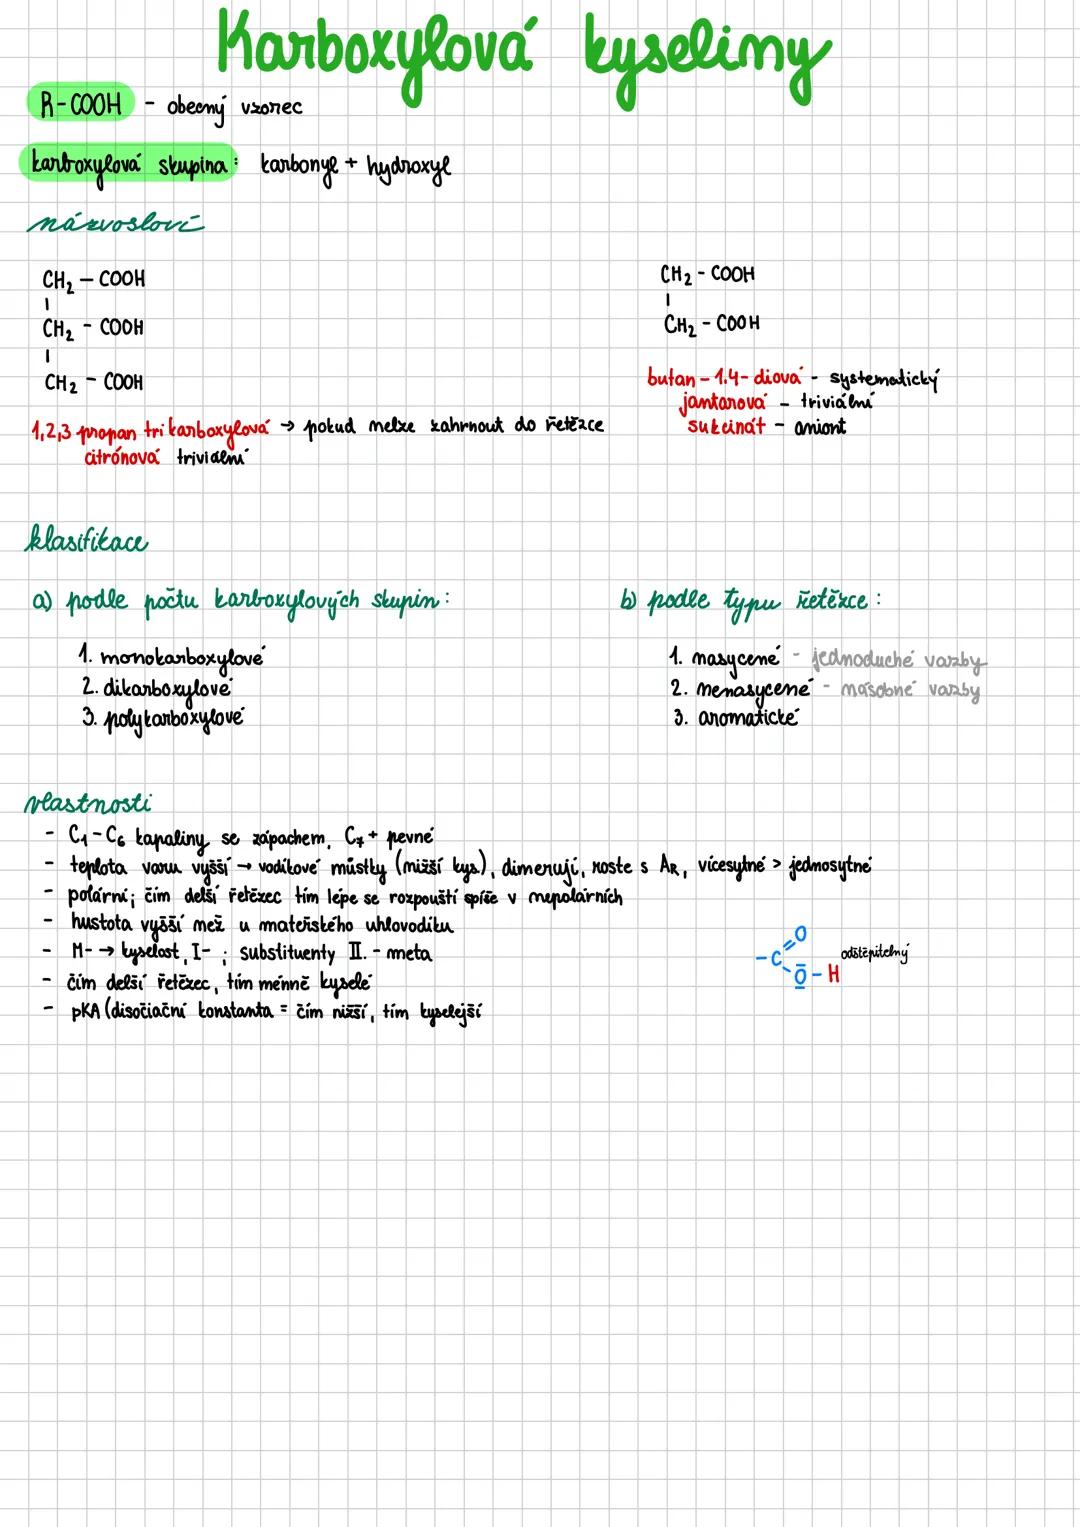 Karboxylová kyseliny
R-COOH - obecný vzorec
karboxylová skupina: karbonyl + hydroxyl
názvosloví
CH₂ — COOH
CH₂ - COOH
CH₂ - COOH
1,2,3 propan trikarboxylová → pokud nelze zahrnout do řetězce
citrónová triviální
CH₂ - COOH
CH₂ - COOH
butan - 1.4- diová - systematický
jantarová - triviální
sukcinát - aniont
klasifikace
a) podle počtu karboxylových skupin:
1. monokarboxylové
2. dikarboxylové
3. polykarboxylové
b) podle typu řetězce:
1. nasycené - jednoduché vazby
2. nenasycené - násobné vazby
3. aromatické
vlastnosti
- C₁-C₆ kapaliny se zápachem, C₇+ pevné
- teplota varu vyšší → vodíkové můstky (nižší kys), dimerují, roste s AR, vícesytné > jednosytné
- polární; čím delší řetězec tím lépe se rozpouští spíše v nepolárních
- hustota vyšší než u mateřského uhlovodíku
- M- → kyselost, I- ; substituenty II. - meta
- čím delší řetězec, tím ménně kyselé
- pKA (disočiační konstanta = čím nižší, tím kyselejší
O
-C
O - H odštěpitelný